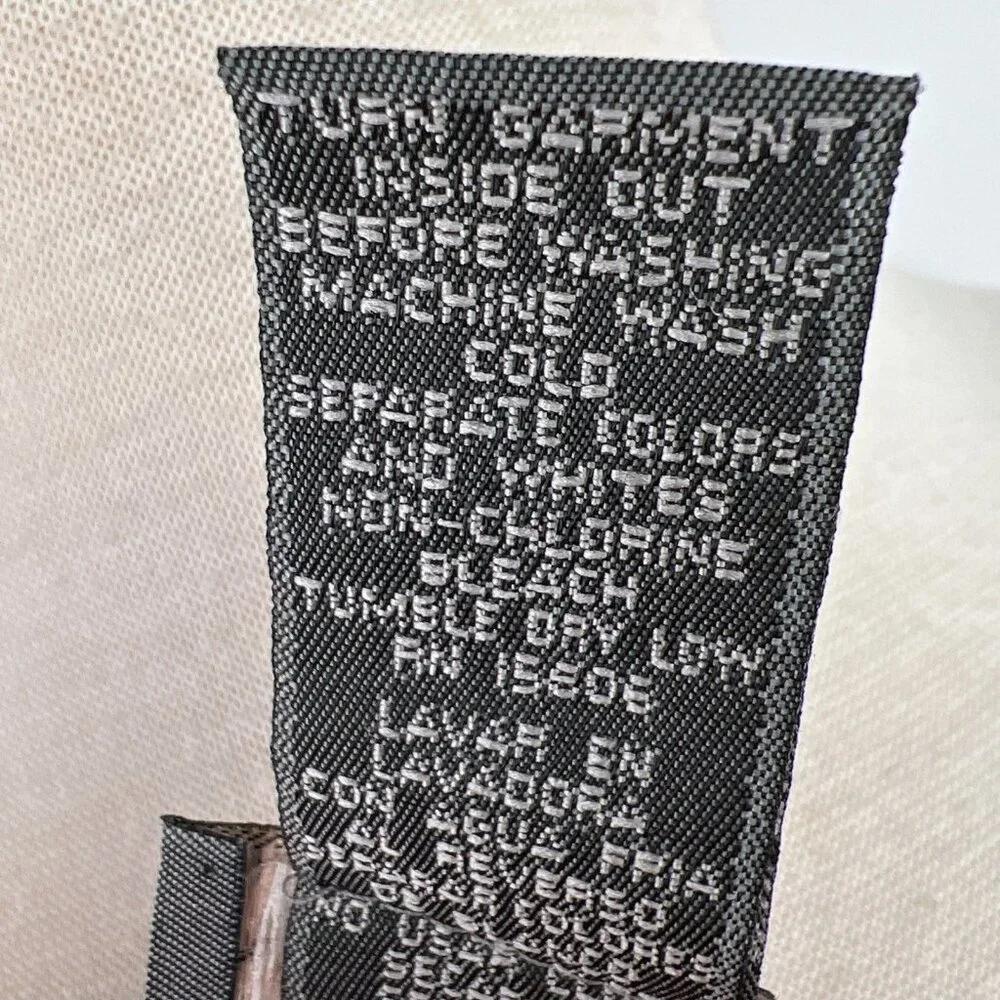 TURN GARMENT
INSIDE OUT
BEFORE WASHING
MACHINE WASH
COLD
SEPARATE COLORS
AND WHITES
NON-CHLORINE
BLEACH
TUMBLE DRY LOW
RN 15805
LAVAR EN
LAVADORA
CON AGUA FRIA
AL REVERSO
COLORES
NO